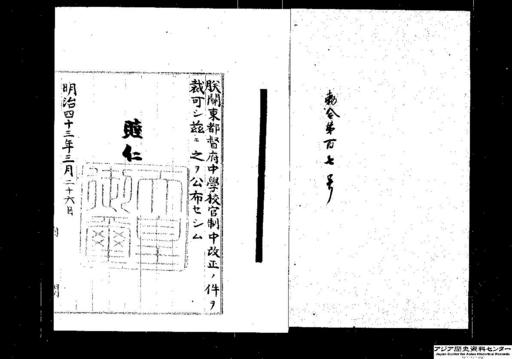 勅令第百七号
朕關東都督府中學校官制中改正ノ件ヲ
裁可シ茲ニ之ヲ公布セシム
睦仁
天皇御璽
明治四十三年三月二十六日
アジア歴史資料センター
Japan Center for Asian Historical Records